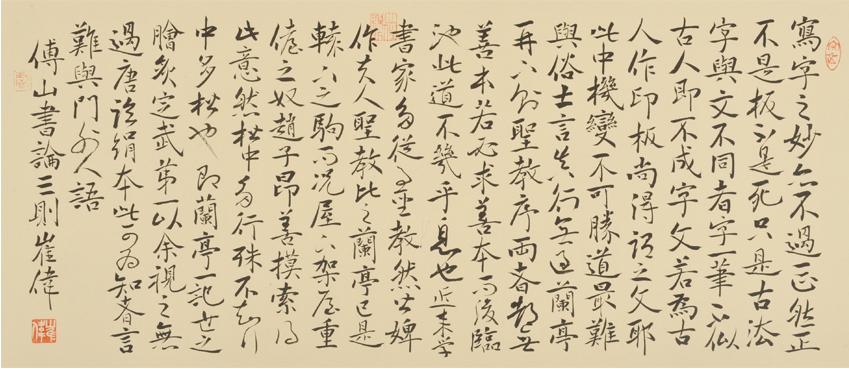 寫字之妙亦不過一正然正
不是板不是死只是古法
字與文不同者字一筆不似
古人即不成字文若為古
人作印板尚得謂之文耶
此中機變不可勝道最難
與俗士言真行無過蘭亭
再下則聖教序兩者都無
善本若必求善本而後臨
池此道不幾乎息也近來學
書家多從事聖教然皆婢
作夫人聖教比之蘭亭已是
轅下之駒而況屋下架屋重
儓之奴趙子昂善摸索得
此意然楷中多行殊不知行
中多楷也即蘭亭一記世之
膾炙定武第一以余視之無
過唐臨絹本此可為知者言
難與門外人語
傅山書論三則崔偉